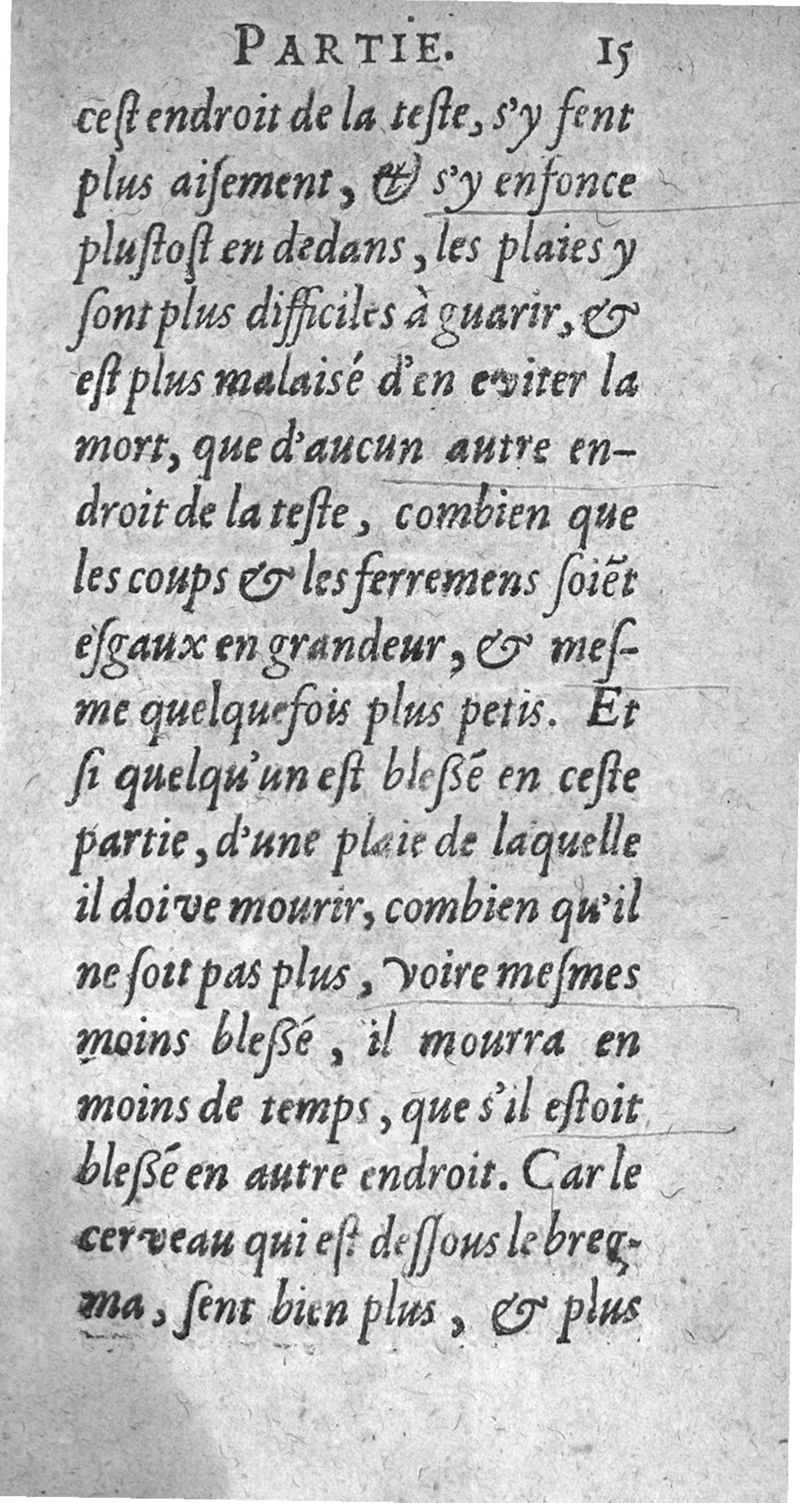 PARTIE. 15
ceſt endroit de la teſte, s'y fent
plus aiſement, & s'y enfonce
pluſtoſt en dedans, les plaies y
ſont plus difficiles à guarir, &
eſt plus malaisé d'en eviter la
mort, que d'aucun autre en-
droit de la teſte, combien que
les coups & les ferremens ſoiẽt
eſgaux en grandeur, & meſ-
me quelquefois plus petis. Et
ſi quelqu'un eſt bleßé en ceſte
partie, d'une plaie de laquelle
il doive mourir, combien qu'il
ne ſoit pas plus, voire meſmes
moins bleßé, il mourra en
moins de temps, que s'il eſtoit
bleßé en autre endroit. Car le
cerveau qui eſt deſſous le breg-
ma, ſent bien plus, & plus